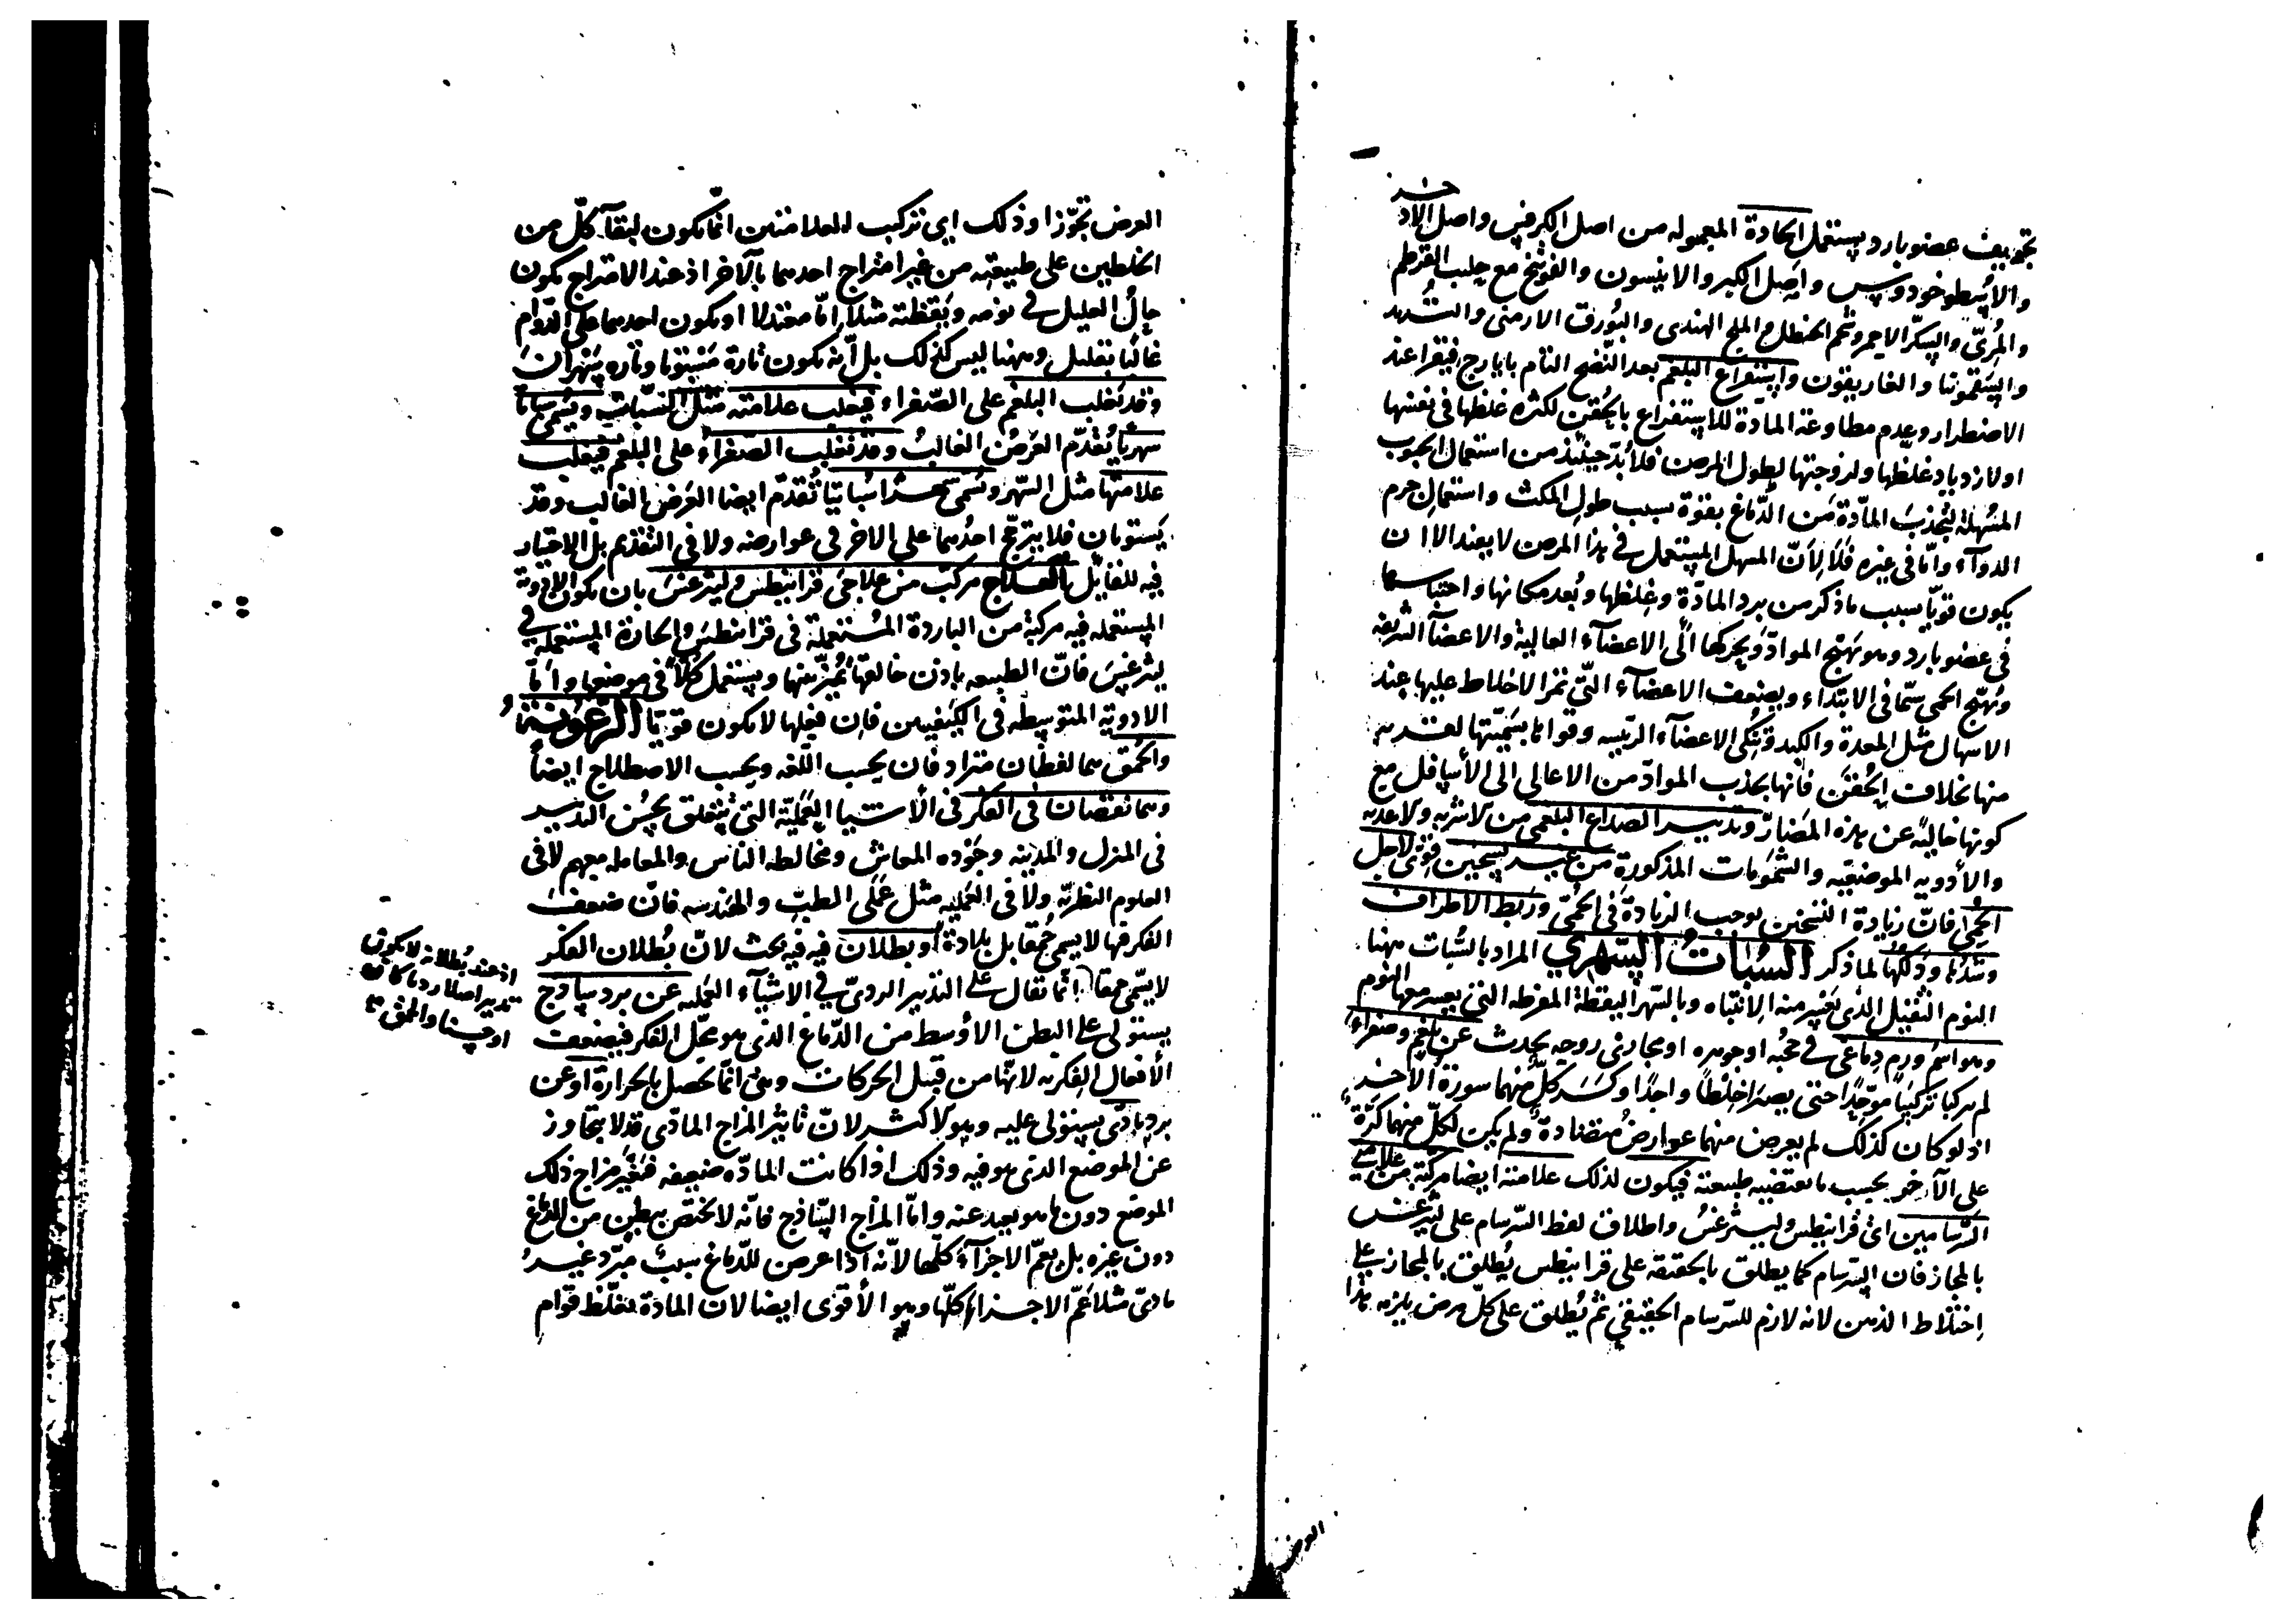 تجويف عضو بارد ويستعمل الحادة المعمولة من اصل الكرفس واصل الاذخر
والاسطوخودوس واصل الكبر والانيسون والفوتنج مع حب القرطم
والمُرّيّ والسكّر الاحمر وشحم الحنظل والملح الهندى والبورق الارمنى والشهد
والسقمونيا والغاريقون واستفراغ البلغم بعد النضج التام بايارج فيقرا عند
الاضطرار وعدم مطاوعة المادة للاستفراغ بالحقن لكثرة غلظها فى نفسها
او لازدياد غلظها ولزوجتها لطول المرض فلا بدّ حينئذ من استعمال الحبوب
المسهلة لتجذب المادّة من الدّماغ بقوة بسبب طول المكث واستعمال جرم
الدوآء وامّا فى غيره فلا لانّ المسهل المستعمل فى هذا المرض لا بد الا ان
يكون قويّا بسبب ما ذكر من برد المادّة وغلظها وبُعد مكانها واحتباسها
فى عضو بارد وهو يهيّج الموادّ ويحركها الى الاعضآء العالية والاعضآء الشريفة
ويهيّج الحمى سيّما فى الابتداء ويضعف الاعضآء التى تمر الاخلاط عليها عند
الاسهال مثل المعدة والكبد وينكى الاعضآء الرئيسه وقواها بسمّيتها لقربه
منها بخلاف الحُقَن فانها بجذب الموادّ من الاعالى الى الأسافل مع
كونها خالية عن هذه المضارّ وتدبير الصداع البلغمى من الاشربه والاغذيه
والأدويه الموضعيه والشمومات المذكورة من غير تسخين قوىّ لاجل
الحمّى فانّ زيادة التسخين يوجب الزيادة فى الحمّى وربط الاطراف
وشدّها ودلكها لما ذكر السُّباتُ السَّهري المراد بالسُّبات ههنا
النوم الثقيل الذى يعسر منه الانتباه وبالسّهر اليقظة المفرطه التى يعسر معها النوم
وهو اسم ورم دماغى فى حجبه او جوهره او مجارى روحه يحدث عن بلغم وصفراء
لم يركبا تركيبًا موحّدًا حتى يصيرا خلطًا واحدًا وكَسَرَ كلّ منهما سورة الآخر
اذ لو كان كذلك لم يعرض منهما عوارض متضادة ولم يكن لكلّ منهما كرّة
على الآخر بحسب ما تقتضيه طبيعته فيكون لذلك علامته ايضا مركبة من علامتى
السّرسامين اى قرانيطس وليثرغس واطلاق لفظ السّرسام على ليثرغس
بالمجاز فان السّرسام كما يطلق بالحقيقة على قرانيطس يُطلق بالمجاز على
اختلاط الذهن لانه لازم للسّرسام الحقيقى ثم يُطلق على كلّ مرض يلزمه هذا
العرض
العرض تجوّزا وذلك اى تركيب العلامتين انّما يكون لبقآء كلّ من
الخلطين على طبيعته من غير امتزاج احدهما بالآخر اذ عند الامتزاج يكون
حال العليل فى نومه ويقظته مثلا امّا معتدلا او يكون احدهما على الدوام
غالبًا بقليل وههنا ليس كذلك بل انّه يكون تارة مسبوتا وتاره يسهر ان
وقد تغلب البلغم على الصّفراء فيغلب علامته مثل السّبات ويسمى سباتا
سهريّا يُقدّم العرض الغالب وقد تغلب الصّفراء على البلغم فيغلب
علامتها مثل السّهر ويسمى سهرا سباتيّا تُقدّم ايضا العرض الغالب وقد
يستويان فلا يترجّح احدهما على الاخر فى عوارضه ولا فى التقديم بل الاختيار
فيه للقايل العلاج مركّب من علاجى قرانيطس وليثرغس بان يكون الادوية
المستعمله فيه مركبة من الباردة المستعملة فى قرانيطس والحادّة المستعمله فى
ليثرغس فانّ الطبيعه باذن خالقها تُميّز بينها ويستعمل كلّا فى موضعها وامّا
الادوية المتوسطه فى الكيفيتين فان فعلها لا يكون قويّا الرُّعُونَةُ
والحُمْق هما لفظان مترادفان بحسب اللغه وبحسب الاصطلاح ايضاً
وهما نقصان فى الفكر فى الأشيا العمليّة التى يتعلق بحُسن التدبير
فى المنزل والمدينه وجَوْده المعاش ومخالطه الناس والمعامله معهم لا فى
العلوم النظريّه ولا فى العمليه مثل عَمَلى الطبّ والهندسه فانّ ضعف
الفكر فيها لا يسمى حُمقا بل بلادة أو بطلان فيه فيه بحث لانّ بُطلان الفكر
لا يسمّى حمقا انّما تقال على التدبير الردىّ فى الاشيآء العمليه عن برد ساذج
يستولى على البطن الأوسط من الدّماغ الذى هو محلّ الفكر فيضعف
الأفعال الفكريه لانّها من قبل الحركات وهى انّما تحصل بالحرارة او عن
برد مادّى يستولى عليه وهو الاكثر لانّ تاثير المزاج المادّى قد لا يتجاوز
عن الموضع الذى هو فيه وذلك اذا كانت المادّه ضعيفه فتغيّر مزاج ذلك
الموضع دون ما هو بعيد عنه وامّا المزاج السّاذج فانّه لا يختصّ ببطن من الدماغ
دون غيره بل يعمّ الاجزآء كلّها لانّه اذا عرض للدّماغ سبب مبرّد غير
مادىّ مثلا عمّ الاجزاء كلّها وهو الأقوى ايضا لان المادة تغلّظ قوام
اذ عند بُطلانه لا يكون
تدبير اصلا رديا كان
او حسنا والحمق